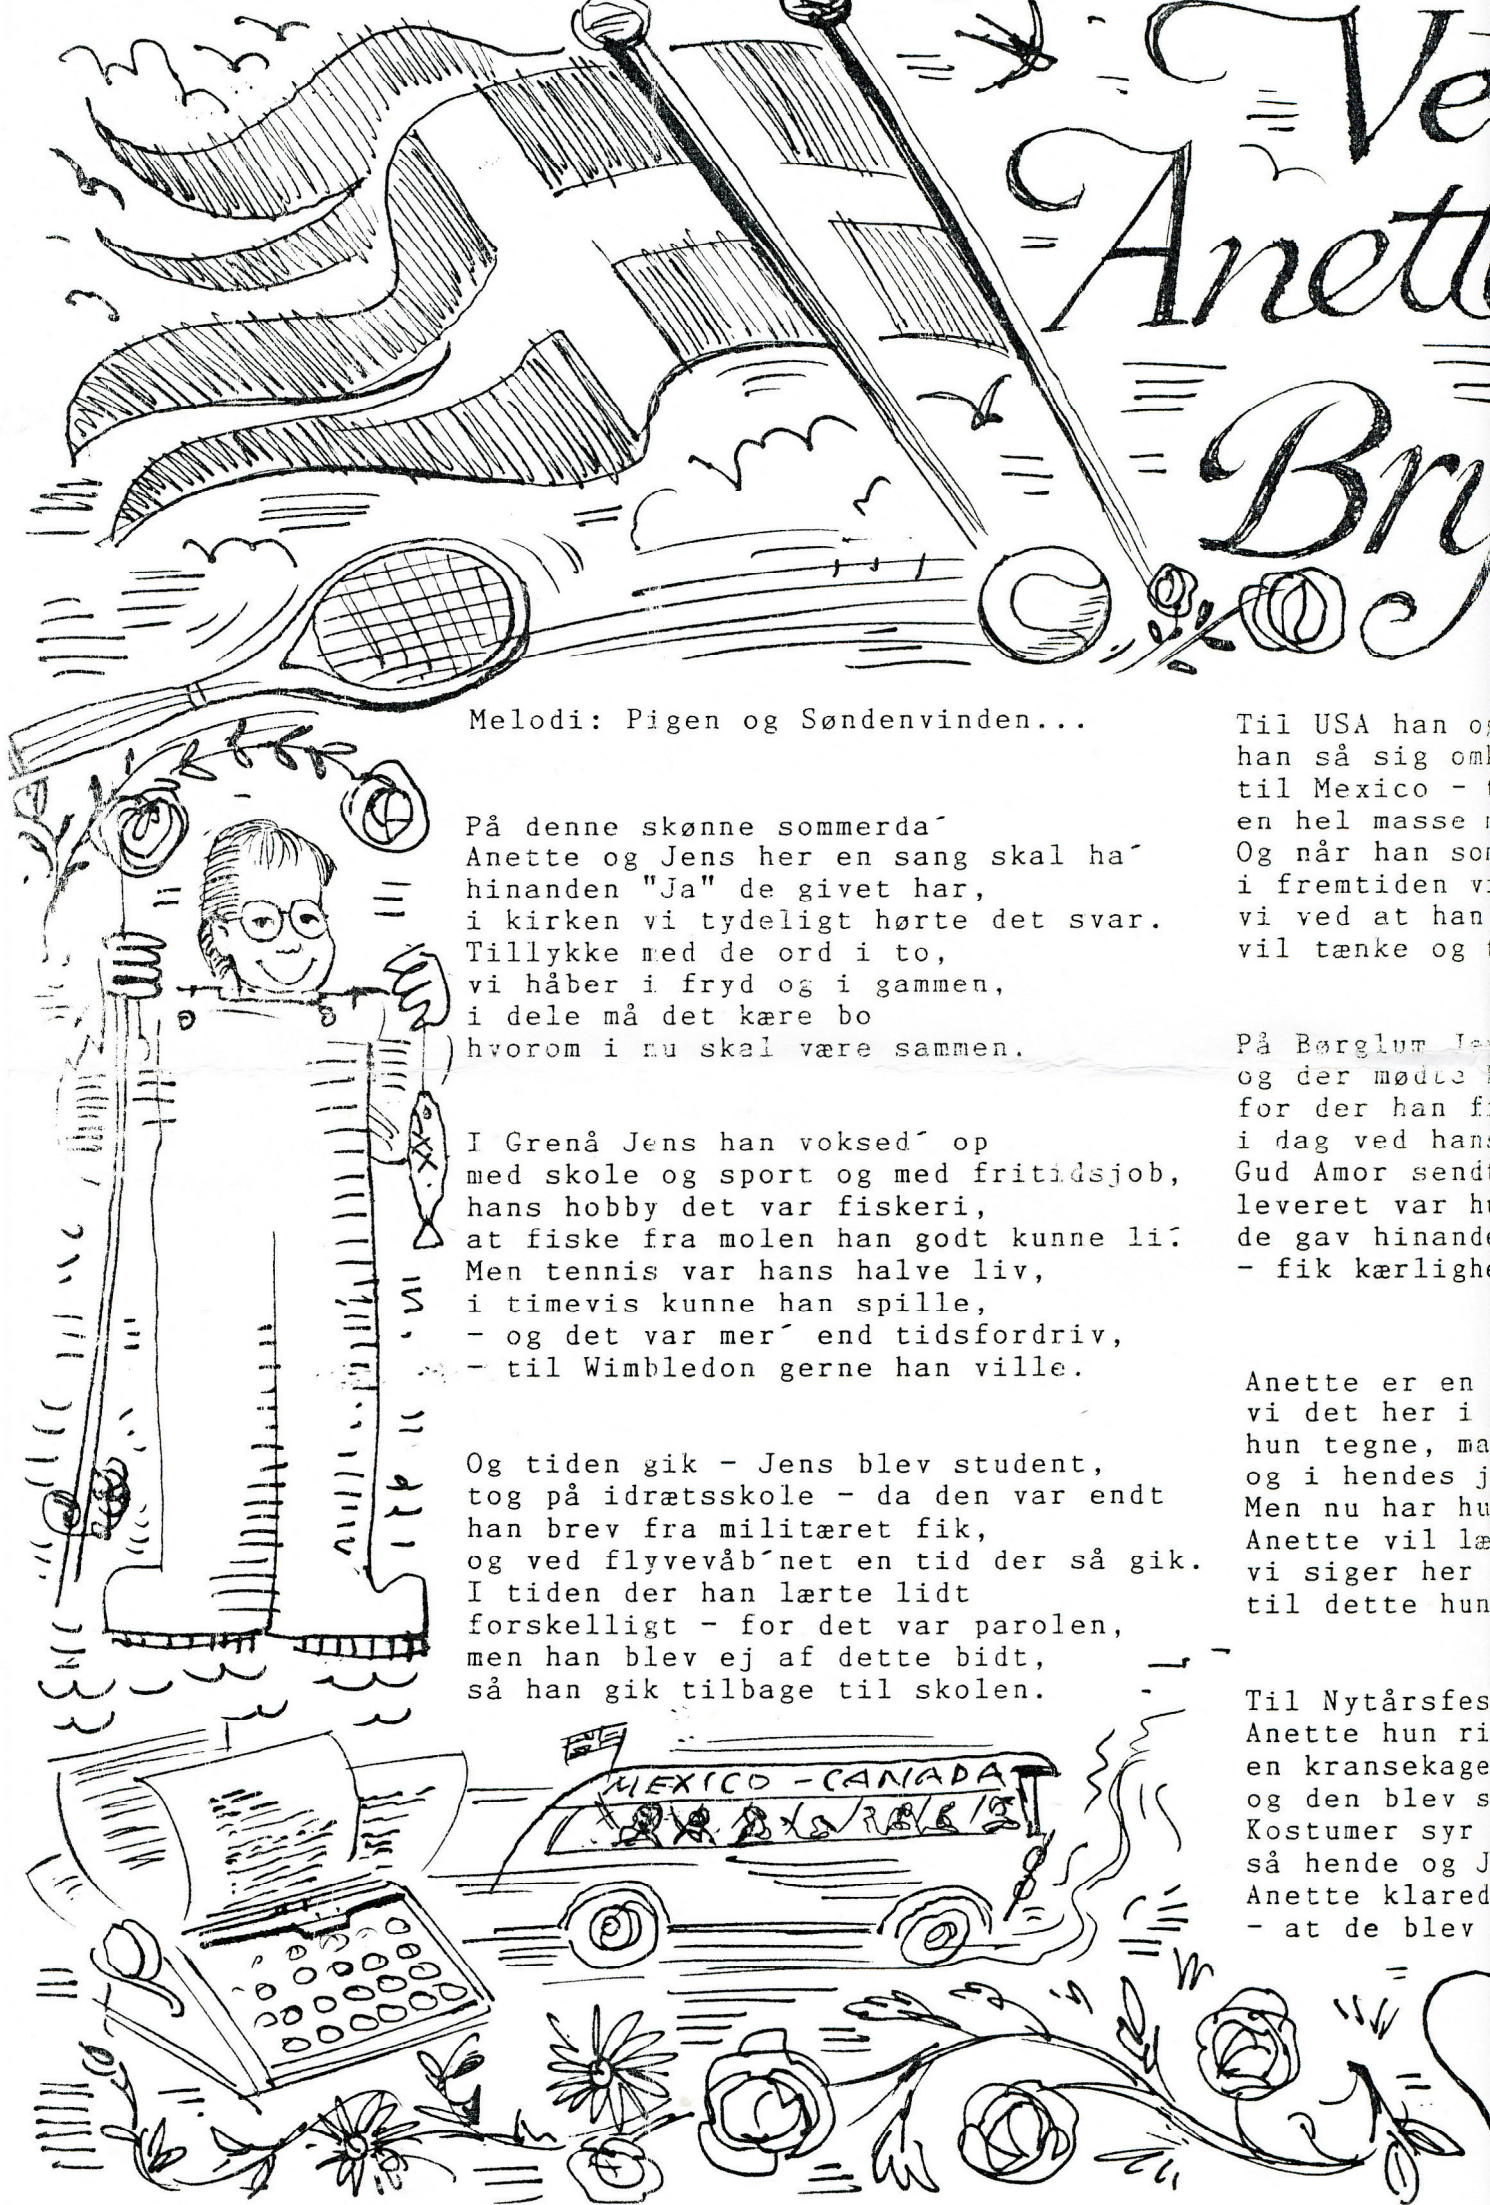 Ve
Anette
Bry
Melodi: Pigen og Søndenvinden...
På denne skønne sommerda´
Anette og Jens her en sang skal ha´
hinanden "Ja" de givet har,
i kirken vi tydeligt hørte det svar.
Tillykke med de ord i to,
vi håber i fryd og i gammen,
i dele må det kære bo
hvorom i nu skal være sammen.
I Grenå Jens han voksed´ op
med skole og sport og med fritidsjob,
hans hobby det var fiskeri,
at fiske fra molen han godt kunne li´.
Men tennis var hans halve liv,
i timevis kunne han spille,
- og det var mer´ end tidsfordriv,
- til Wimbledon gerne han ville.
Og tiden gik - Jens blev student,
tog på idrætsskole - da den var endt
han brev fra militæret fik,
og ved flyvevåb´net en tid der så gik.
I tiden der han lærte lidt
forskelligt - for det var parolen,
men han blev ej af dette bidt,
så han gik tilbage til skolen.
Til USA han og
han så sig omk
til Mexico - t
en hel masse
Og når han som
i fremtiden vi
vi ved at han
vil tænke og t
På Børglum Jen
og der mødte
for der han fi
i dag ved hans
Gud Amor sendt
leveret var hu
de gav hinande
- fik kærlighe
Anette er en
vi det her i
hun tegne, ma
og i hendes j
Men nu har hu
Anette vil læ
vi siger her
til dette hun
Til Nytårsfes
Anette hun ri
en kransekage
og den blev s
Kostumer syr
så hende og J
Anette klared
- at de blev
MEXICO - CANADA